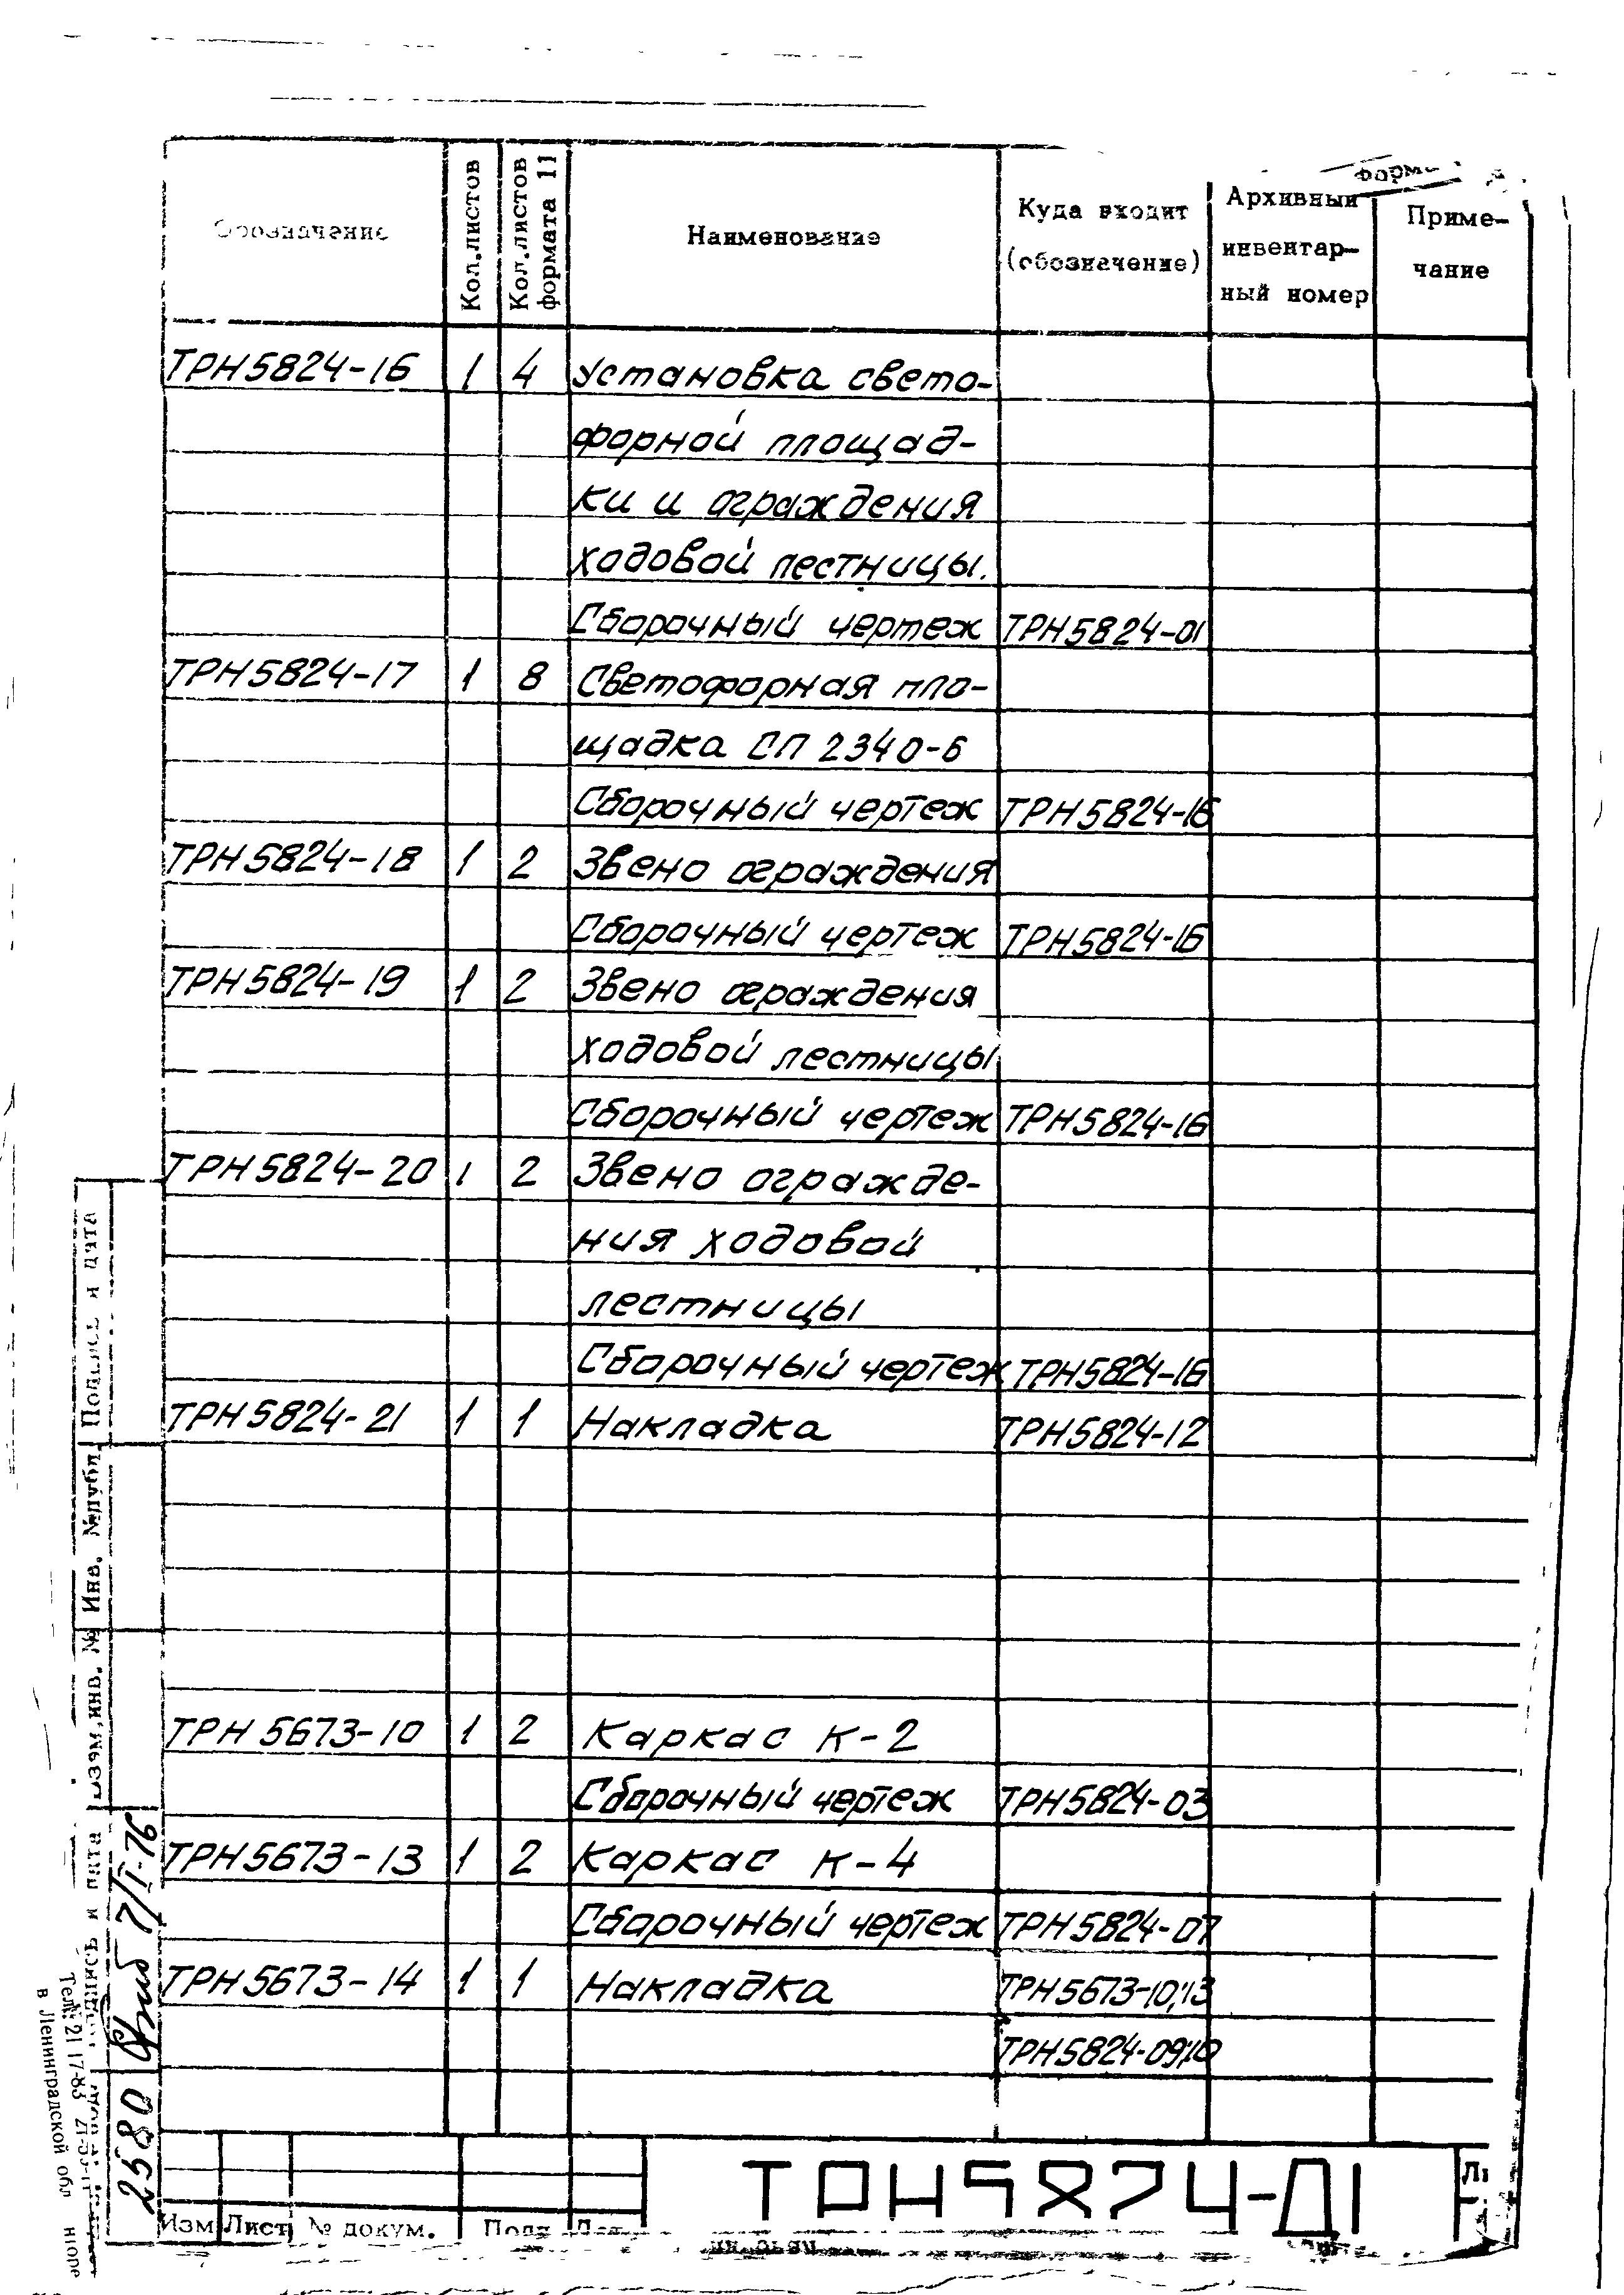 Обозначение
Кол.листов
Кол.листов
формата 11
Наименование
Куда входит
(обозначение)
Архивный
инвентар-
ный номер
Приме-
чание
ТРН5824-16 1 4 Установка свето-
форной площад-
ки и ограждения
ходовой лестницы.
Сборочный чертеж ТРН5824-01
ТРН5824-17 1 8 Светофорная пло-
щадка СП 2340-Б
Сборочный чертеж ТРН5824-16
ТРН5824-18 1 2 Звено ограждения
Сборочный чертеж ТРН5824-16
ТРН5824-19 1 2 Звено ограждения
ходовой лестницы
Сборочный чертеж ТРН5824-16
ТРН5824-20 1 2 Звено огражде-
ния ходовой
лестницы
Сборочный чертеж ТРН5824-16
ТРН5824-21 1 1 Накладка ТРН5824-12
ТРН5673-10 1 2 Каркас К-2
Сборочный чертеж ТРН5824-03
ТРН5673-13 1 2 Каркас К-4
Сборочный чертеж ТРН5824-07
ТРН5673-14 1 1 Накладка ТРН5673-10,13
ТРН5824-09,10
Подпись и дата
Инв. №дубл.
Взам.инв. №
Подпись и дата
7/I-76
2580
в Ленинградской обл
Изм Лист № докум. Подп
ТРН5824-Д1